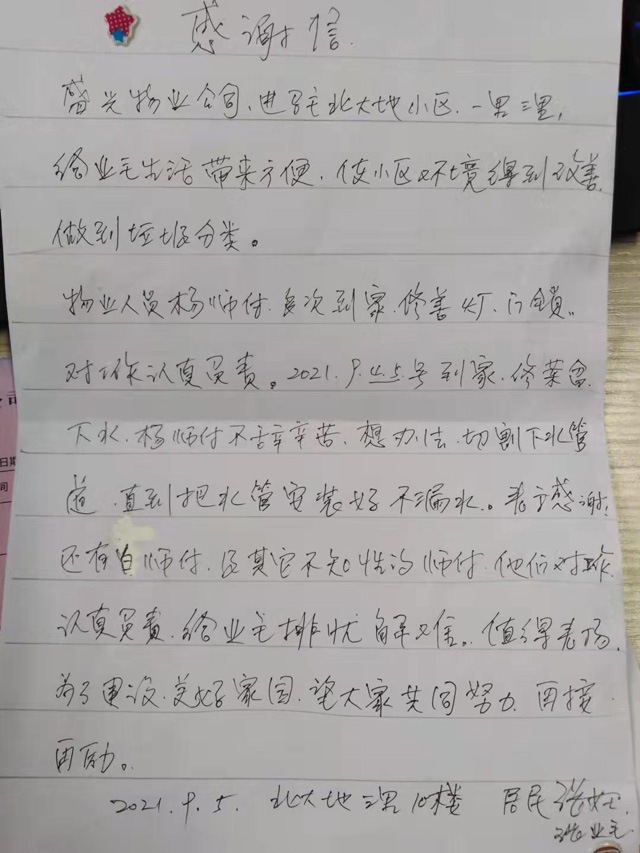 感谢信
盛兴物业公司、进驻北大地小区、一里三里,
给业主生活带来方便、使小区环境得到改善,
做到垃圾分类。
物业人员杨师付、多次到家、修善灯、门锁..
对工作认真负责。2021.9.4.5.号到家、修菜盆
下水、杨师付不辞辛苦、想办法、切割下水管
道、直到把水管安装好不漏水。表示感谢,
还有白师付、及其它不知姓的师付、他们对工作
认真负责、给业主排忧解难。值得表扬,
为了建设、美好家园、望大家共同努力、再接
再励。
2021.9.5. 北大地三里10楼 居民张
业主